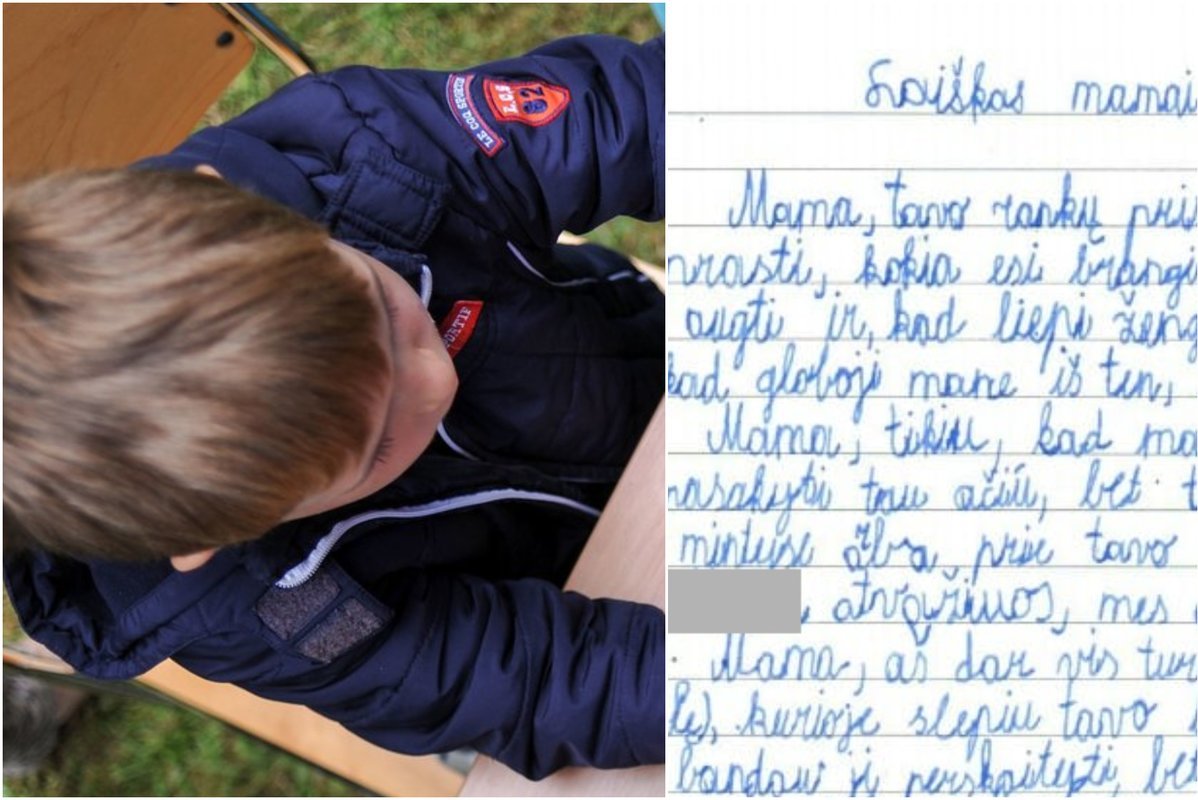 LE COQ SPORTIF
L.C.S
82
ORTIF
Laiškas mamai
Mama, tavo rankų pri
prasti, kokia esi brangi
augti ir, kad liepi ženg
kad globoji mane iš ten,
Mama, tikiu, kad ma
pasakyti tau ačiū, bet t
mintyse arba prie tavo
atvažiuos, mes
Mama, aš dar vis tur
lę), kurioje slepiu tavo
bandau ji perskaityti, bet